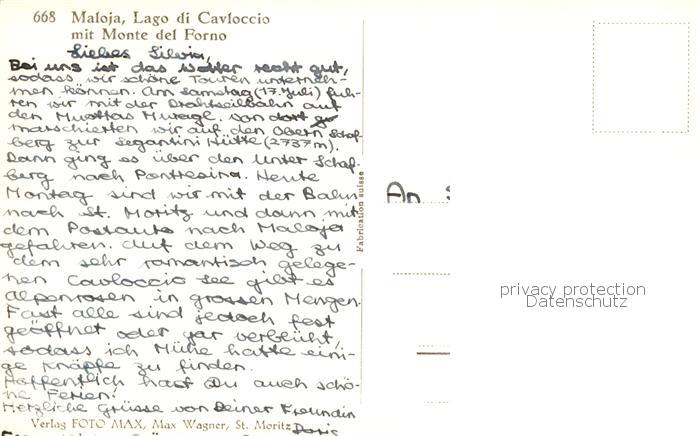 668 Maloja, Lago di Cavloccio
mit Monte del Forno
Liebes Silvia,
Bei uns ist das Wetter recht gut,
sodass wir schöne Touren unterneh-
men können. Am Samstag (17. Juli) fuh-
ren wir mit der Drahtseilbahn auf
den Muottas Muragl. Von dort
marschierten wir auf den Obern Schaf-
berg zur Segantini Hütte (2737m).
Dann ging es über den Unter Schaf-
berg nach Pontresina. Heute
Montag sind wir mit der Bahn
nach St. Moritz und dann mit
dem Postauto nach Maloja
gefahren. Auf dem Weg zu
dem sehr romantisch gelege-
nen Cavloccio See gibt es
Alpenrosen in grossen Mengen.
Fast alle sind jedoch fest
geöffnet oder gar verblüht,
sodass ich Mühe hatte eini-
ge Knöpfe zu finden.
Hoffentlich hast Du auch schö-
ne Ferien!
Herzliche Grüsse von Deiner Freundin
Doris
Verlag FOTO MAX, Max Wagner, St. Moritz
Fabrication suisse
An
privacy protection
Datenschutz